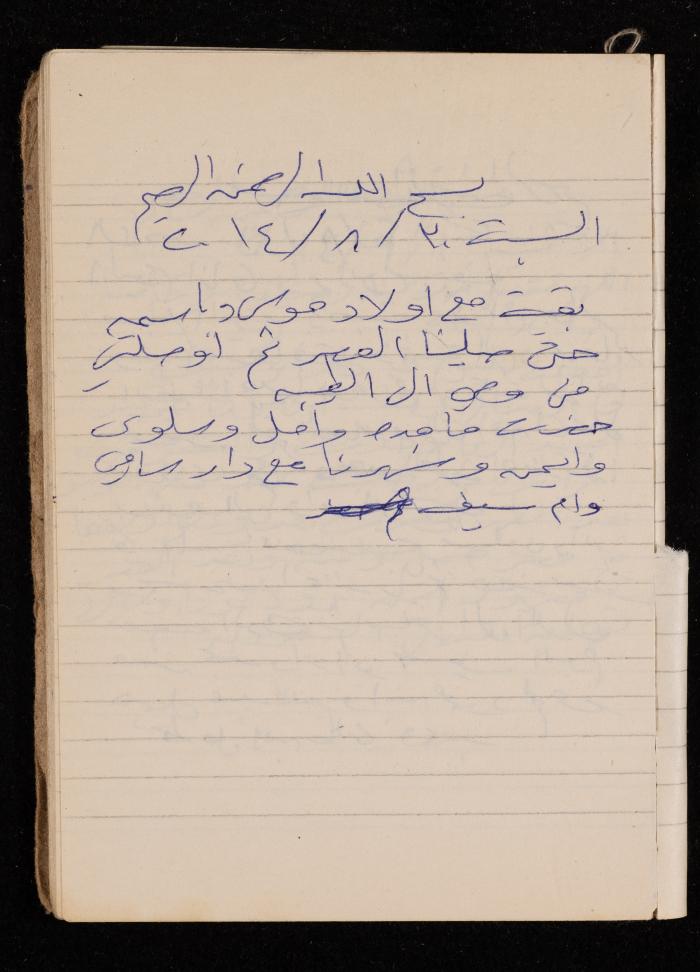 بسم الله الرحمن الرحيم
السبت ٣٠/٨/١٤ ت
بقيت مع اولاد موسى وباسمه
حتى صلينا العصر ثم اوصلتني
من الى الطيبه
حضرت ماجده وامل وسلوى
وايمن وسهرنا مع دار سامي
وام سيف